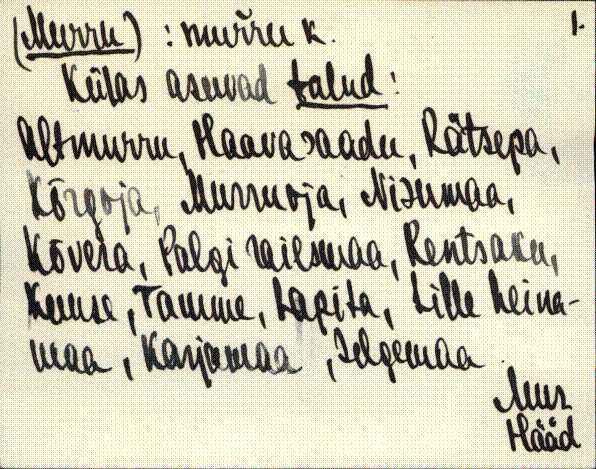 1.
(Murru) : murru k.
Külas asuvad talud:
Altmurru, Haavasaadu, Rätsepa,
Kõrgoja, Murruoja, Nisumaa,
Kõvera, Palgi railsmaa, Rentsaku,
Kuuse, Tamme, Lapita, Lille heina-
maa, Karjamaa, Selgemaa.
Mus
Hääd